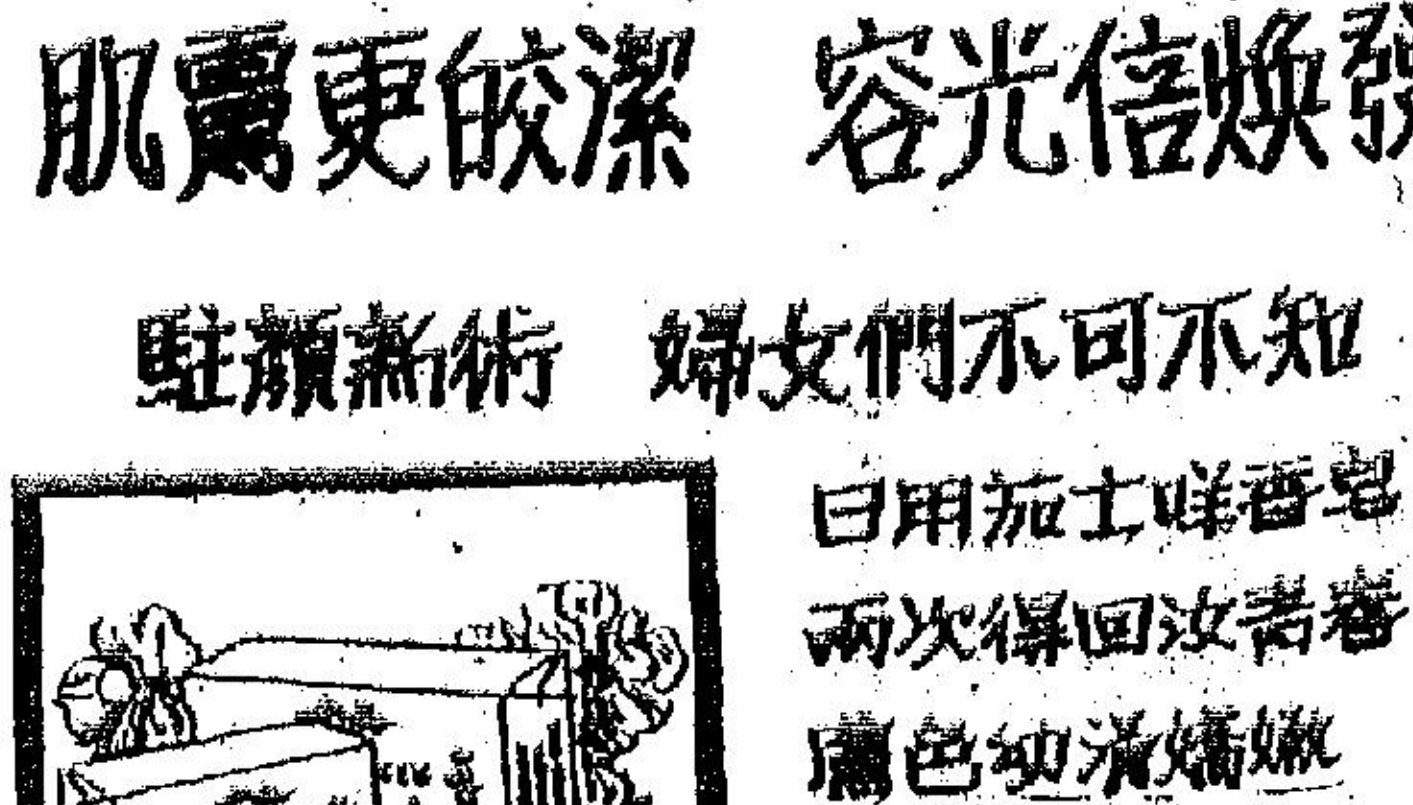 肌膚更皎潔 容光倍煥發
駐顏新術 婦女們不可不知
日用茄士咩香皂
兩次得回汝青春
膚色幼滑嬌嫩